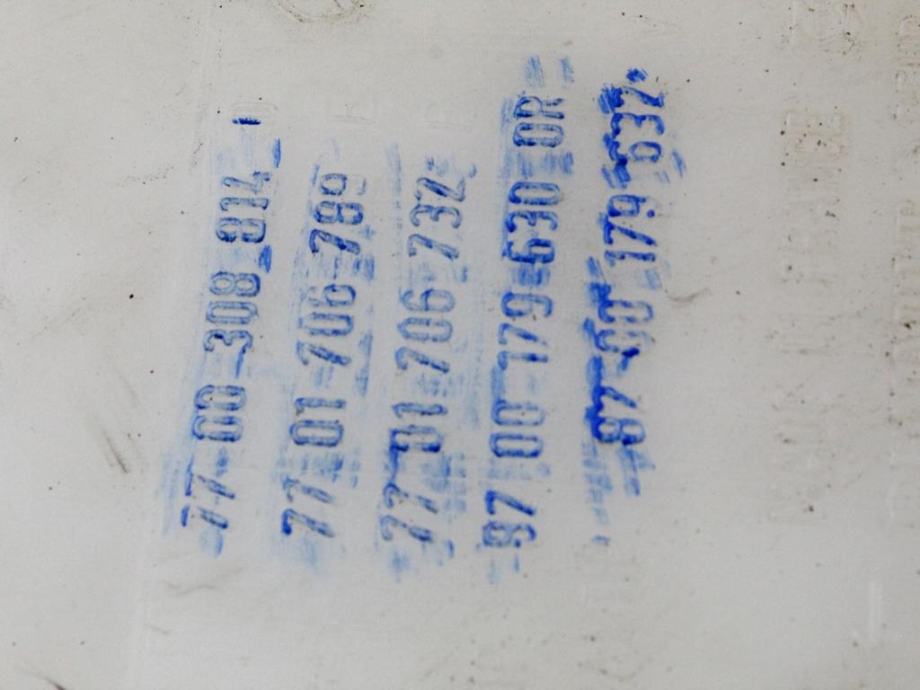 77-00-308-814
77-01-706-789
77-01-706-732
87-00-179-630 OR
87-00-179-632